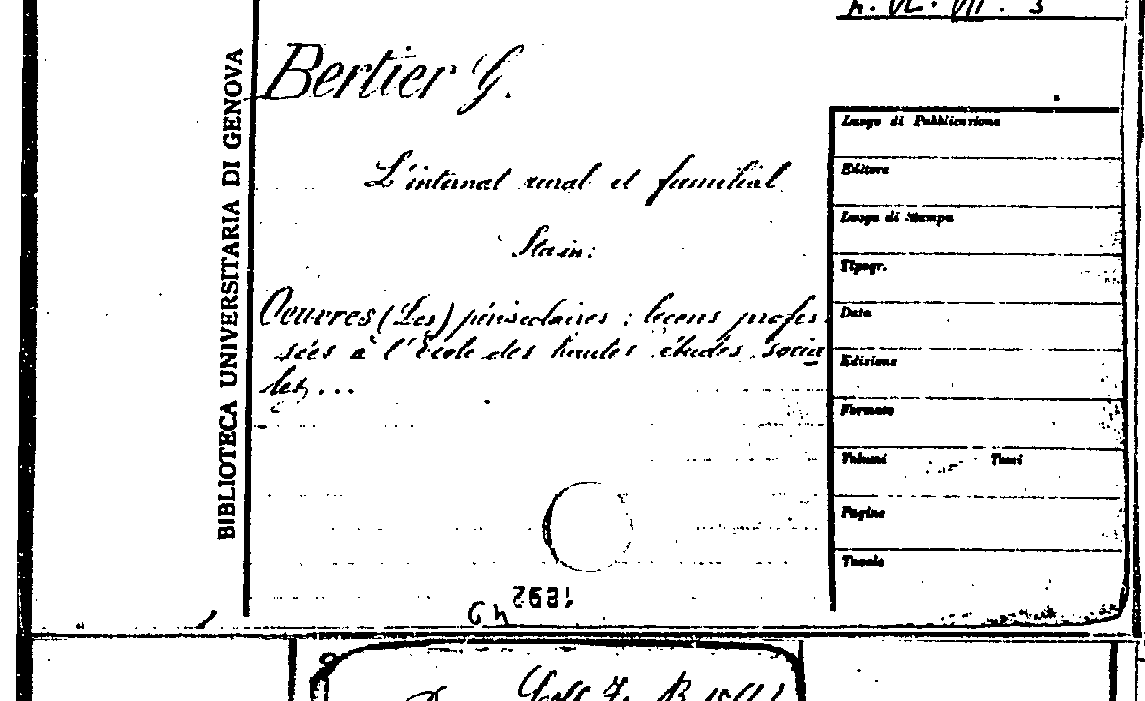 BIBLIOTECA UNIVERSITARIA DI GENOVA
Bertier G.
L'internat rural et familial
Sta in:
Oeuvres (Les) périscolaires : leçons profes
sées à l'École des hautes études socia
les ...
Luogo di Pubblicazione
Editore
Luogo di Stampa
Tipogr.
Data
Edizione
Formato
Volumi Tomi
Pagine
Tavole